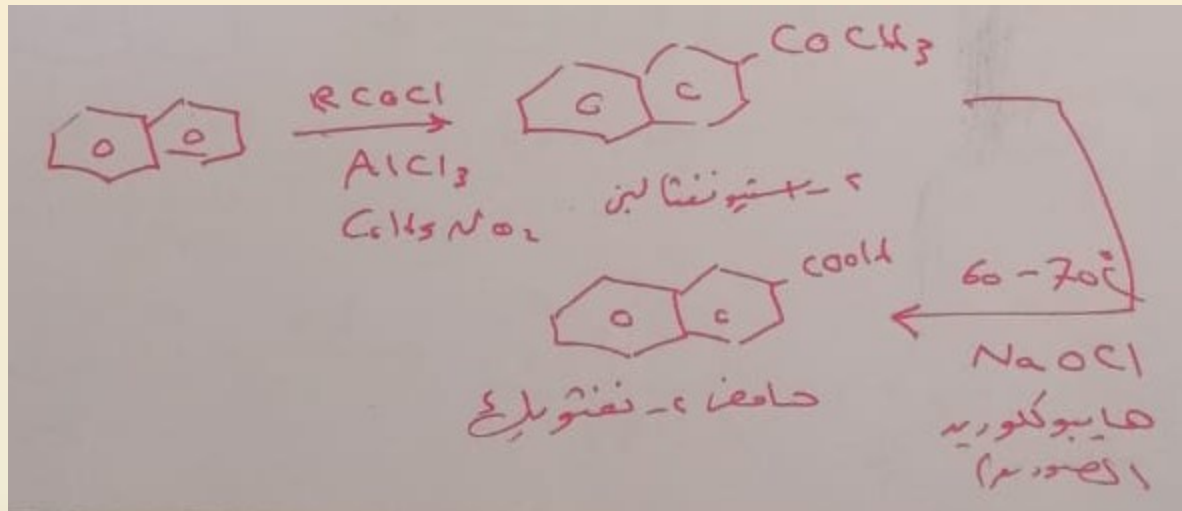 RCOCl
AlCl3
C6H5NO2
COCH3
٢ - استيونفثالين
60 - 70°C
NaOCl
هايبوكلوريد
الصوديوم
COOH
حامض ٢ - نفثويك